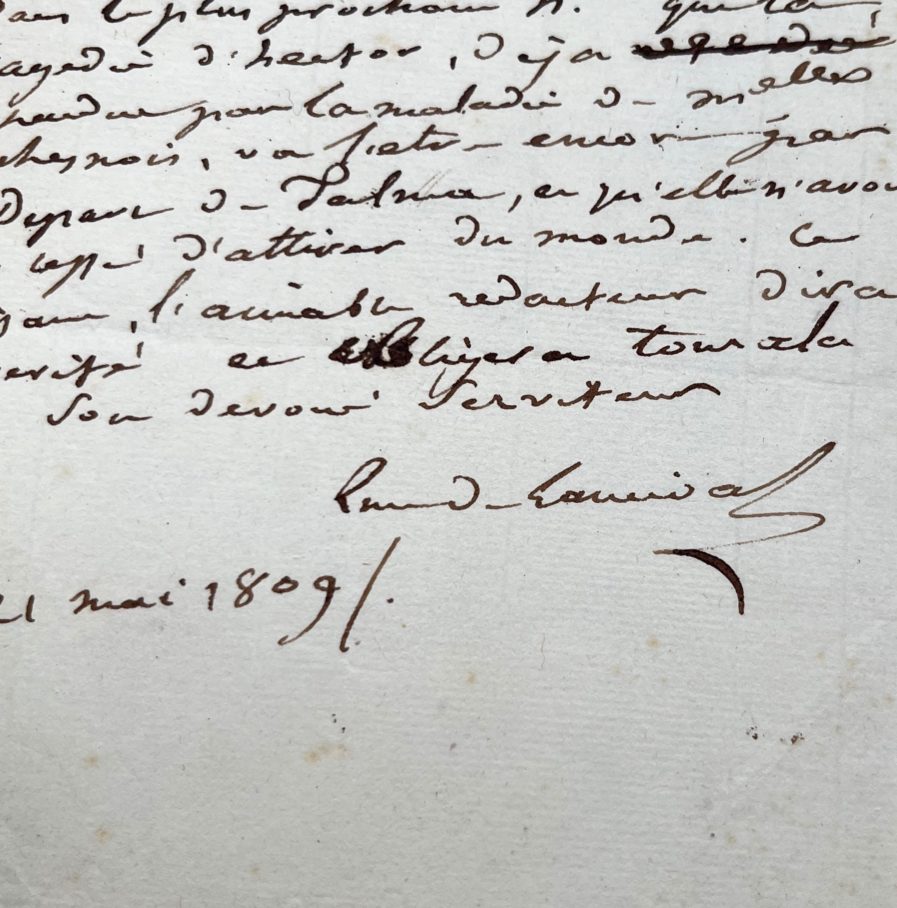 dans le plus prochain n.° que la
agédie d'hector, déja
pendue par la maladie de melle
chesnois, va l'etre encore par
depart de Talma, et qu'elle n'avoit
cessé d'attirer du monde. Ce
sant, l'aimable redacteur dira
verité et obligera tout a la
Son devoué Serviteur
Luce de Lancival
21 mai 1809/.